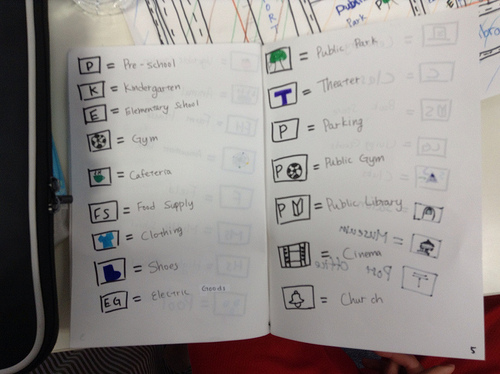 P = Pre-school
K = Kindergarten
E = Elementary School
= Gym
= Cafeteria
FS = Food Supply
= Clothing
= Shoes
EG = Electric Goods
= Public Park
T = Theater
P = Parking
P = Public Gym
P = Public Library
= Museum
= Cinema
Post Office
= Church
5
Park
PORT